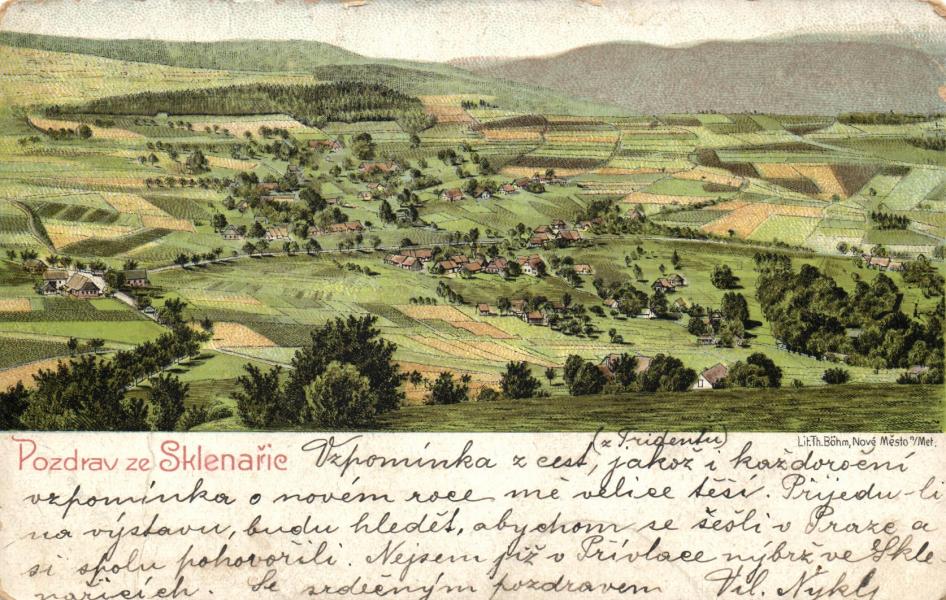 Lit. Th. Böhm, Nové Město n/Met.
Pozdrav ze Sklenařic
(z Tridentu)
Vzpomínka z cest, jakož i každoroční
vzpomínka o novém roce mě velice těší. Přijedu-li
na výstavu, budu hledět, abychom se sešli v Praze a
si spolu pohovořili. Nejsem již v Přívlace nýbrž ve Skle-
nařicích. Se srdečným pozdravem Vil. Nykl